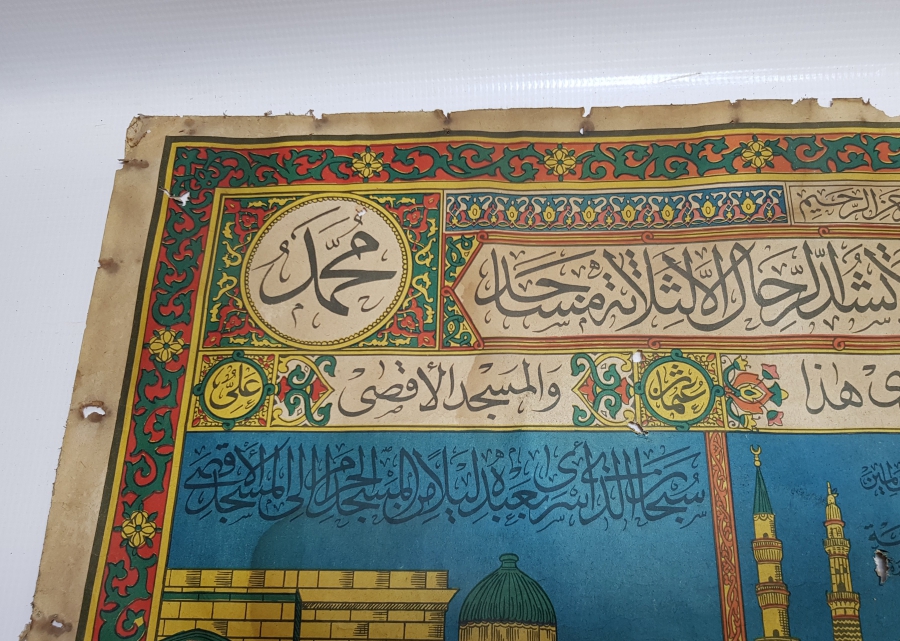 الرحيم
محمد
لا تشد الرحال إلا لثلاثة مساجد
هذا
عثمان
والمسجد الأقصى
علي
سبحان الذي أسرى بعبده ليلا من المسجد الحرام إلى المسجد الأقصى